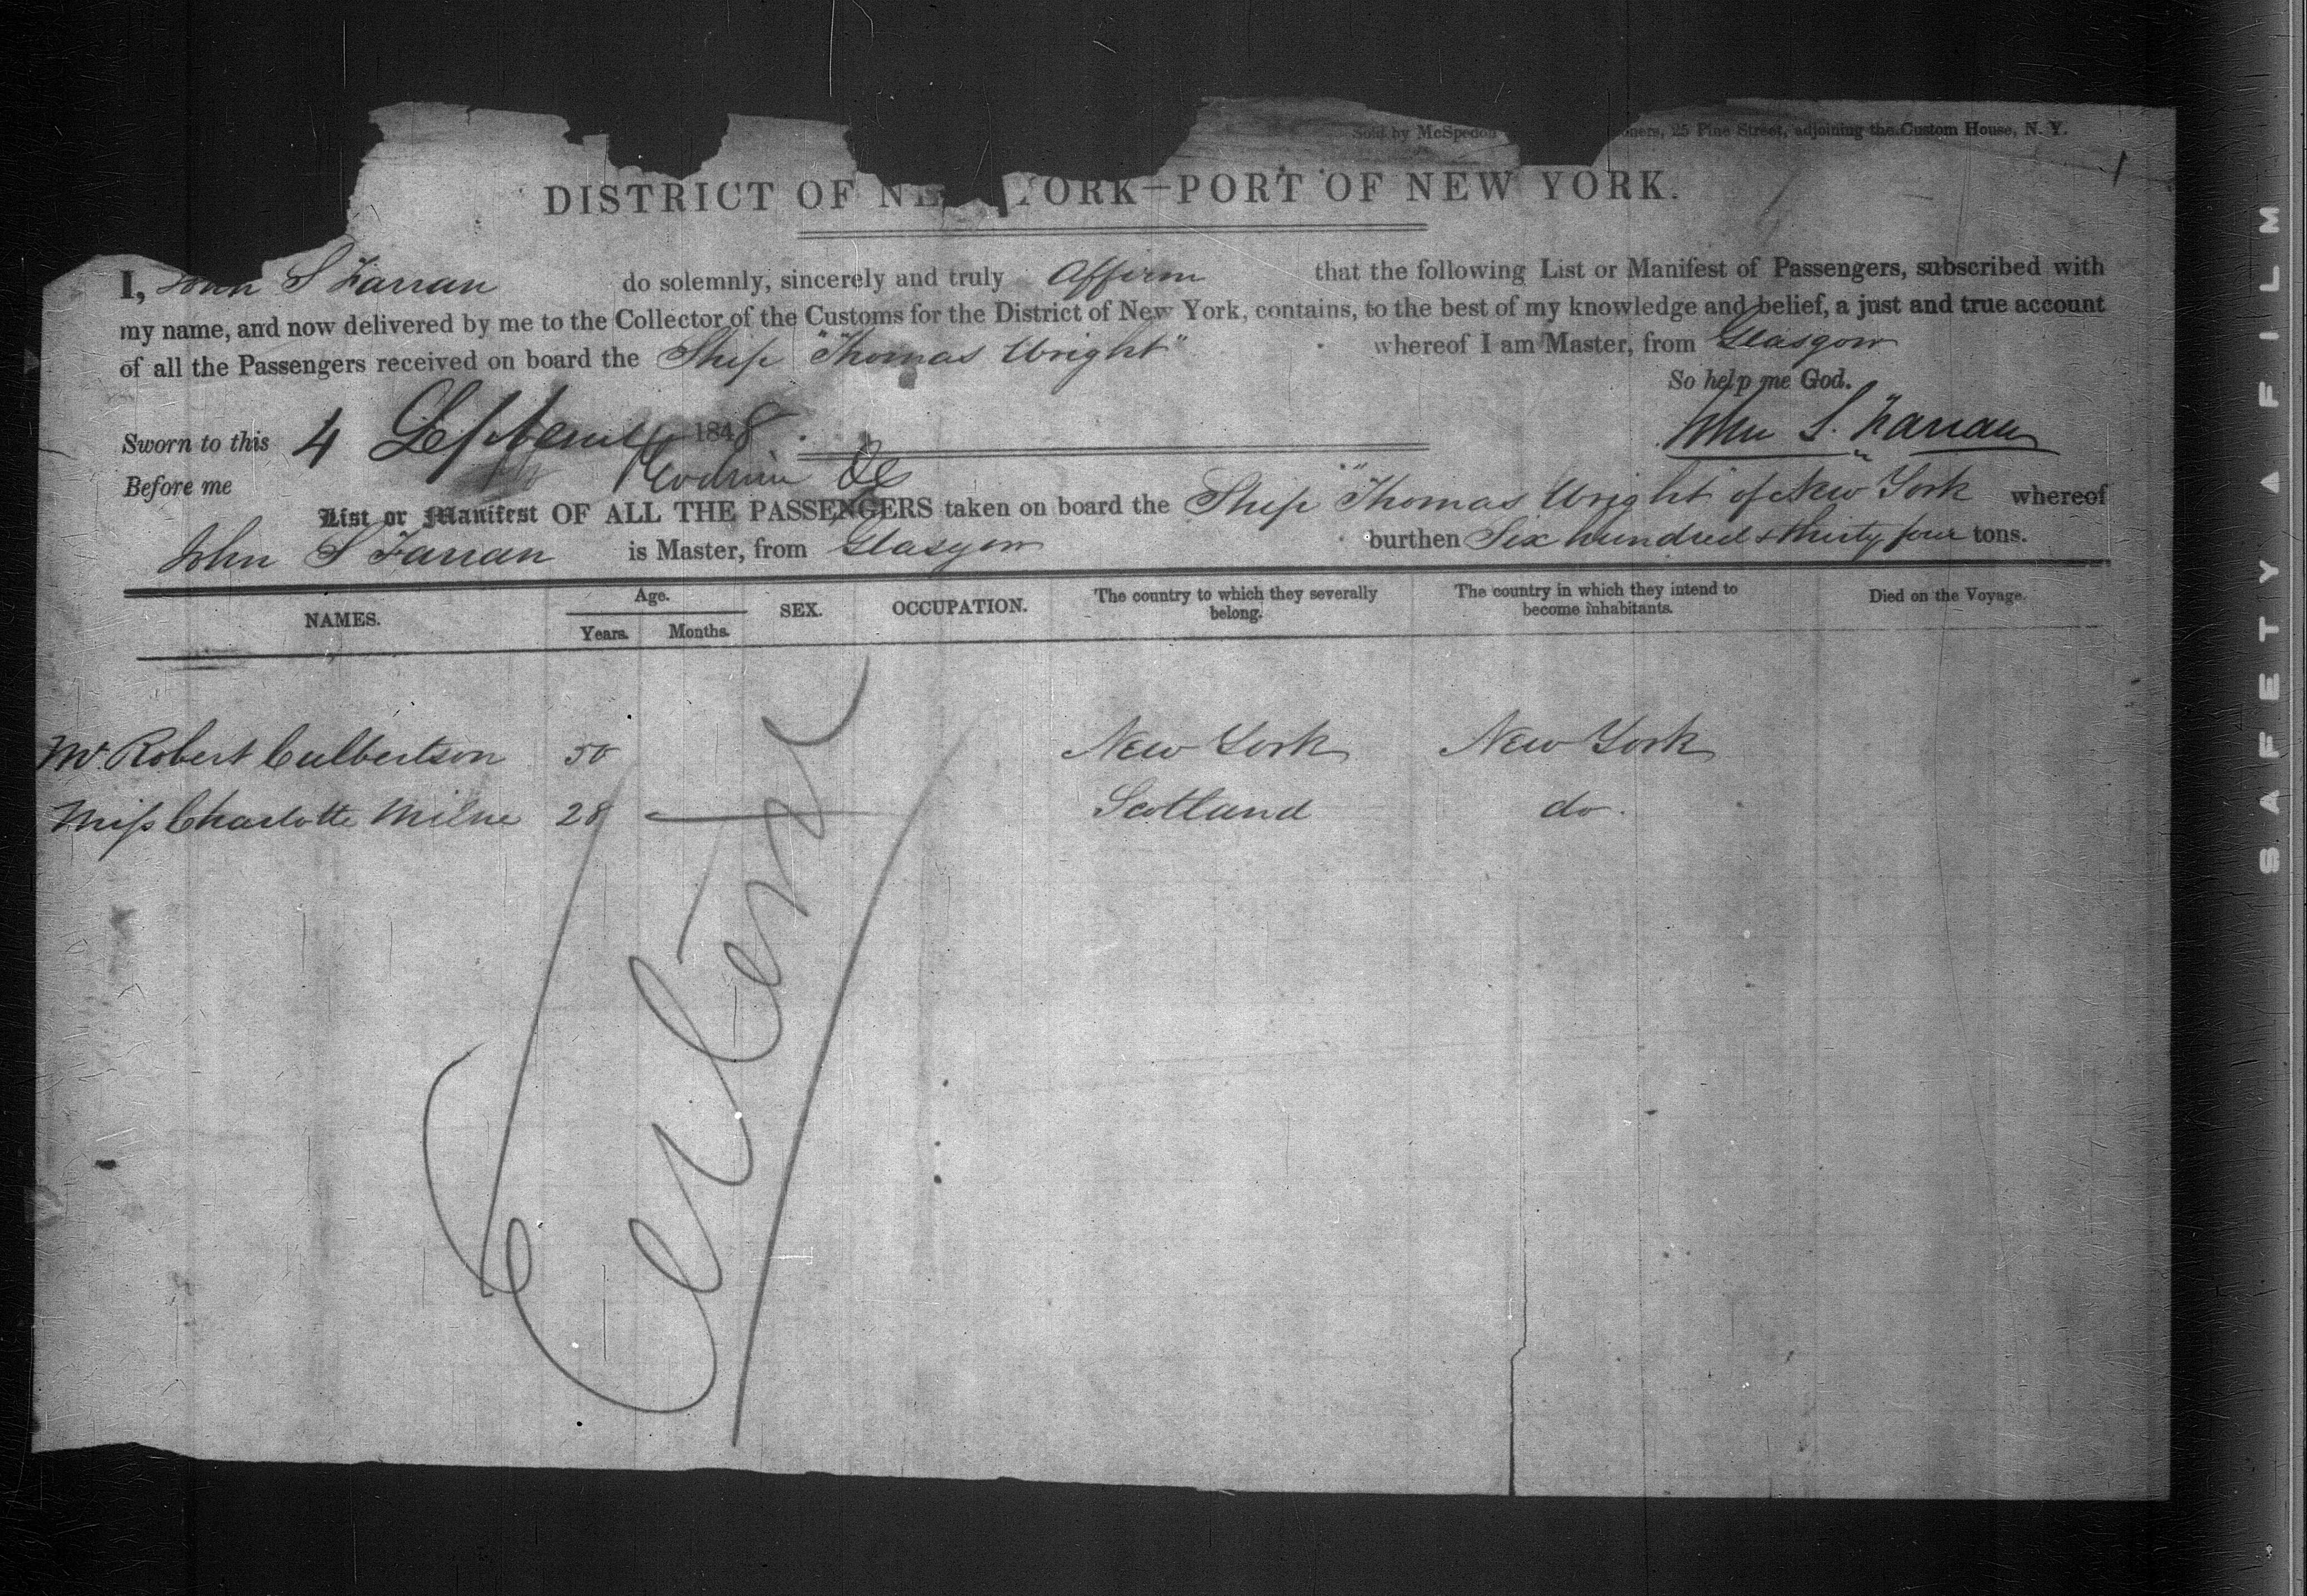 Sold by McSpedon oners, 25 Pine Street, adjoining the Custom House, N. Y.
1
DISTRICT OF NE YORK—PORT OF NEW YORK.
I, John S Farran do solemnly, sincerely and truly Affirm that the following List or Manifest of Passengers, subscribed with
my name, and now delivered by me to the Collector of the Customs for the District of New York, contains, to the best of my knowledge and belief, a just and true account
of all the Passengers received on board the Ship "Thomas Wright" whereof I am Master, from Glasgow
So help me God.
Sworn to this 4 September 1848. John S. Farran
Before me
List or Manifest OF ALL THE PASSENGERS taken on board the Ship "Thomas Wright" of New York whereof
John S Farran is Master, from Glasgow burthen Six hundred & thirty four tons.
NAMES. Age. Years. Months. SEX. OCCUPATION. The country to which they severally belong. The country in which they intend to become inhabitants. Died on the Voyage.
Mr. Robert Culbertson 50 New York New York
Miss Charlotte Milne 28 Scotland do.
SAFETY FILM